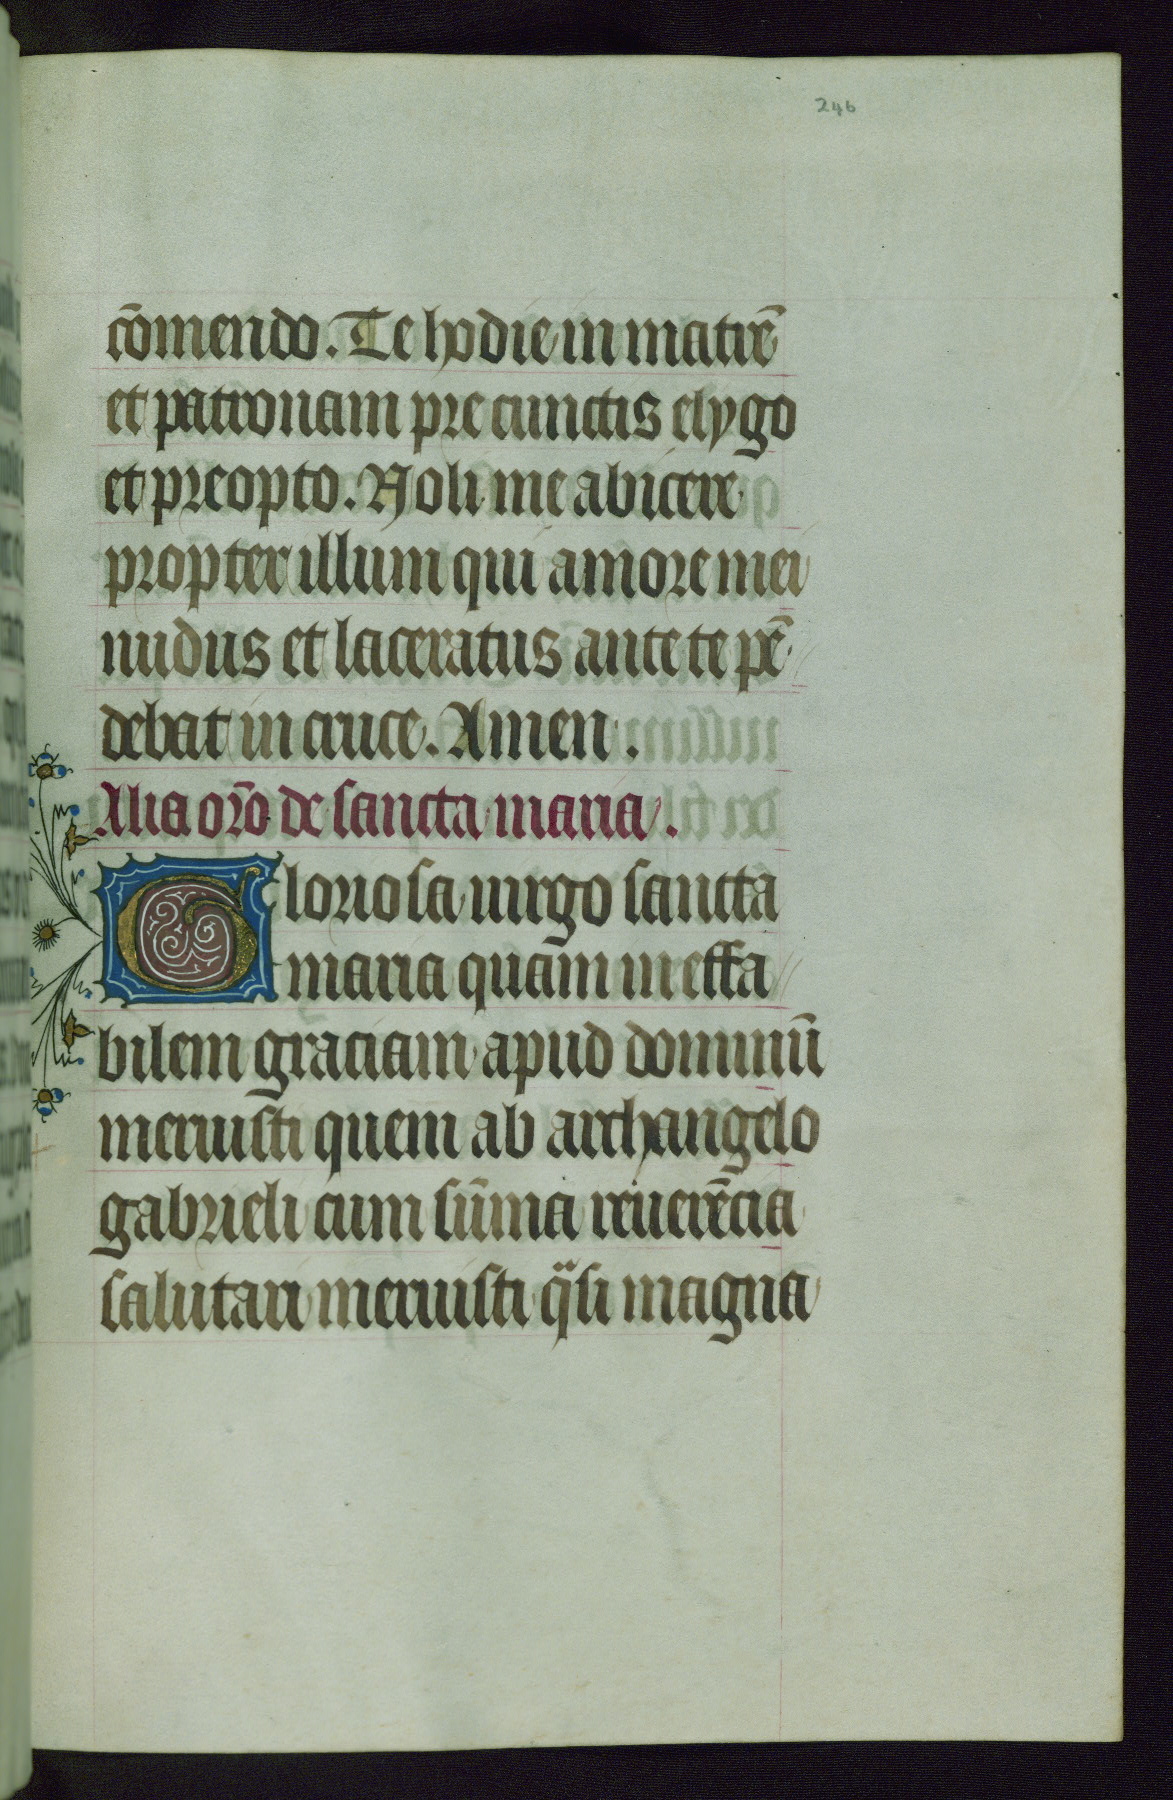 246
cōmendo. Te hodie in matrē
et patronam pre cunctis elygo
et preopto. Noli me abicere
propter illum qui amore mei
nudus et laceratus ante te pē
debat in cruce. Amen.
Alia orō de sancta maria.
Gloriosa uirgo sancta
maria quam ineffa
bilem graciam apud dominū
meruisti quem ab archangelo
gabrieli cum sūma reuerēcia
salutari meruisti qᷓsi magna